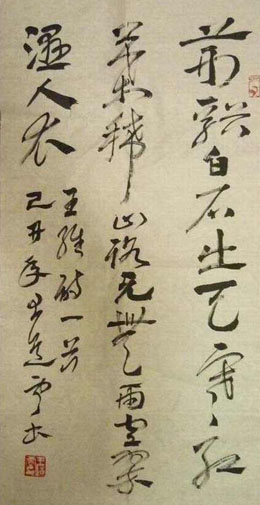 荊谿白石出天寒紅
葉稀山路元無雨空翠
濕人衣
王維詩一首
己丑年